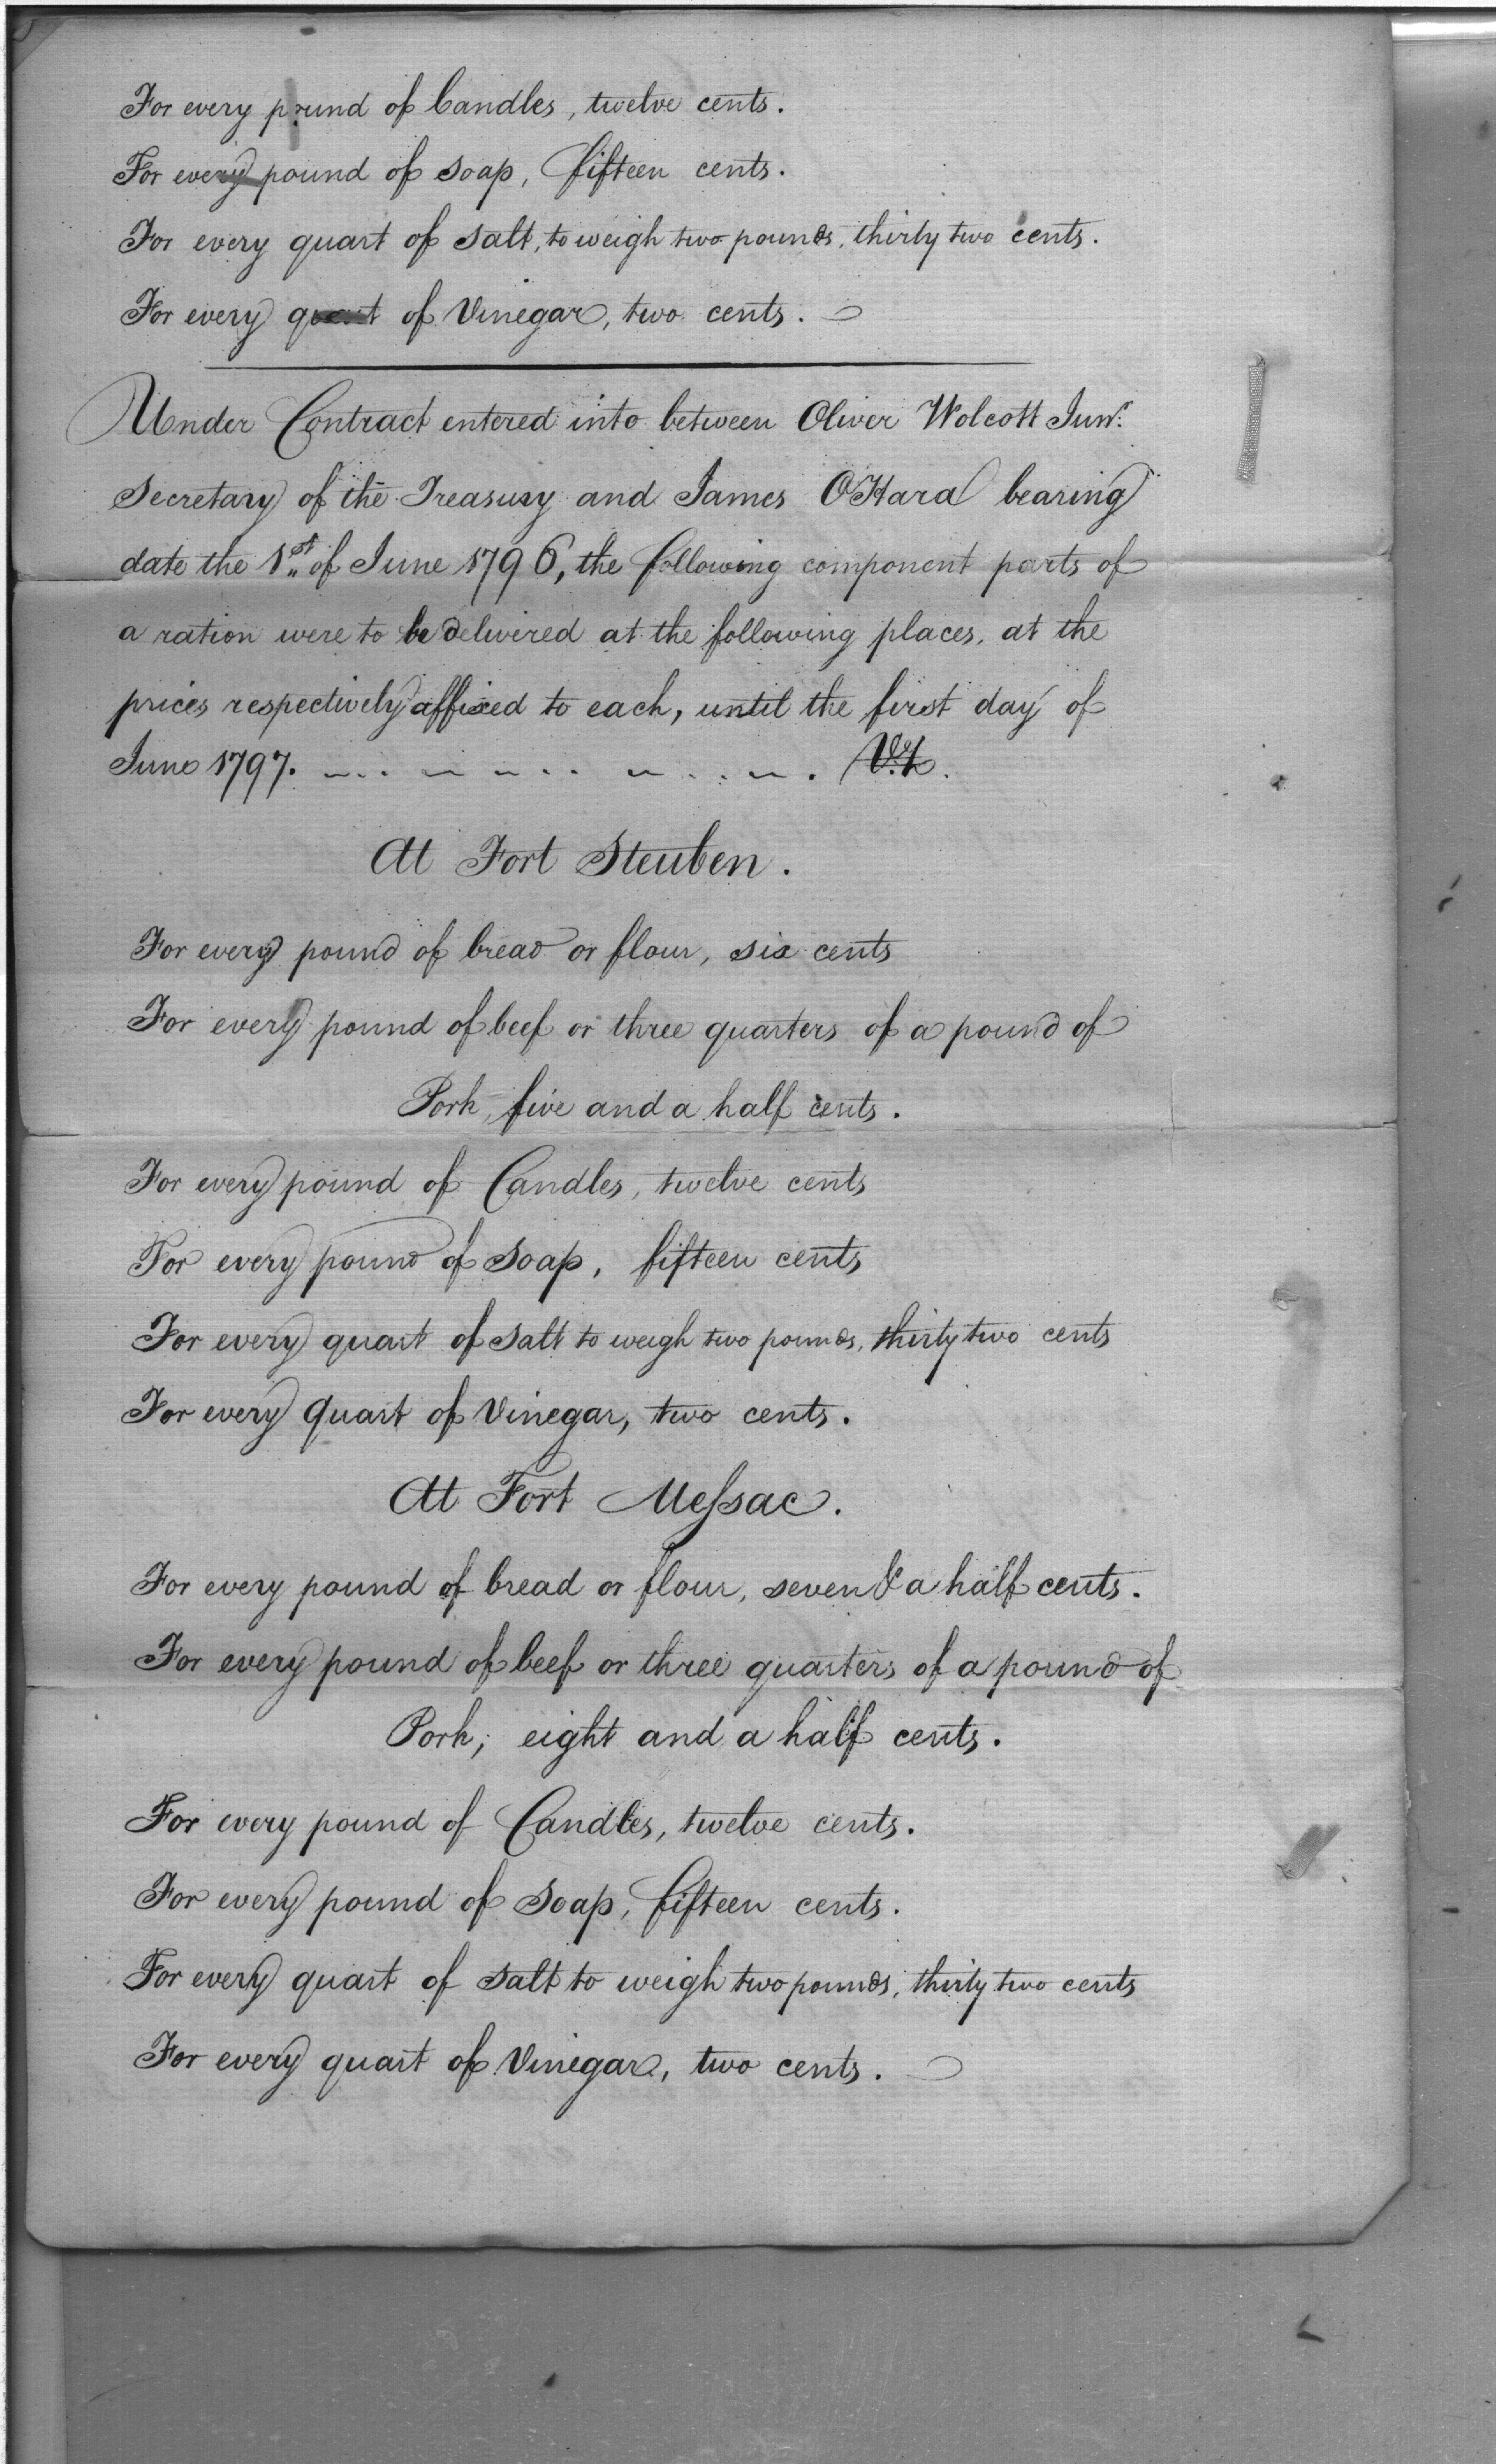 For every pound of Candles, twelve cents.
For every pound of Soap, fifteen cents.
For every quart of Salt, to weigh two pounds, thirty two cents.
For every quart of Vinegar, two cents.
Under Contract entered into between Oliver Wolcott Junr.
Secretary of the Treasury and James OHara bearing
date the 1st of June 1796, the following component parts of
a ration were to be delivered at the following places, at the
prices respectively affixed to each, until the first day of
June 1797. Vizt.
At Fort Steuben.
For every pound of bread or flour, six cents
For every pound of beef or three quarters of a pound of
Pork, five and a half cents.
For every pound of Candles, twelve cents
For every pound of Soap, fifteen cents
For every quart of Salt to weigh two pounds, thirty two cents
For every Quart of Vinegar, two cents.
At Fort Messac.
For every pound of bread or flour, seven & a half cents.
For every pound of beef or three quarters of a pound of
Pork, eight and a half cents.
For every pound of Candles, twelve cents.
For every pound of Soap, fifteen cents.
For every quart of Salt to weigh two pounds, thirty two cents
For every quart of Vinegar, two cents.